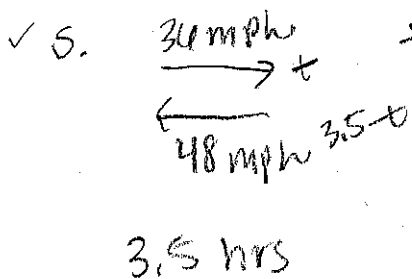 ✓ 5. 36 mph
t
48 mph 3.5-t
3.5 hrs